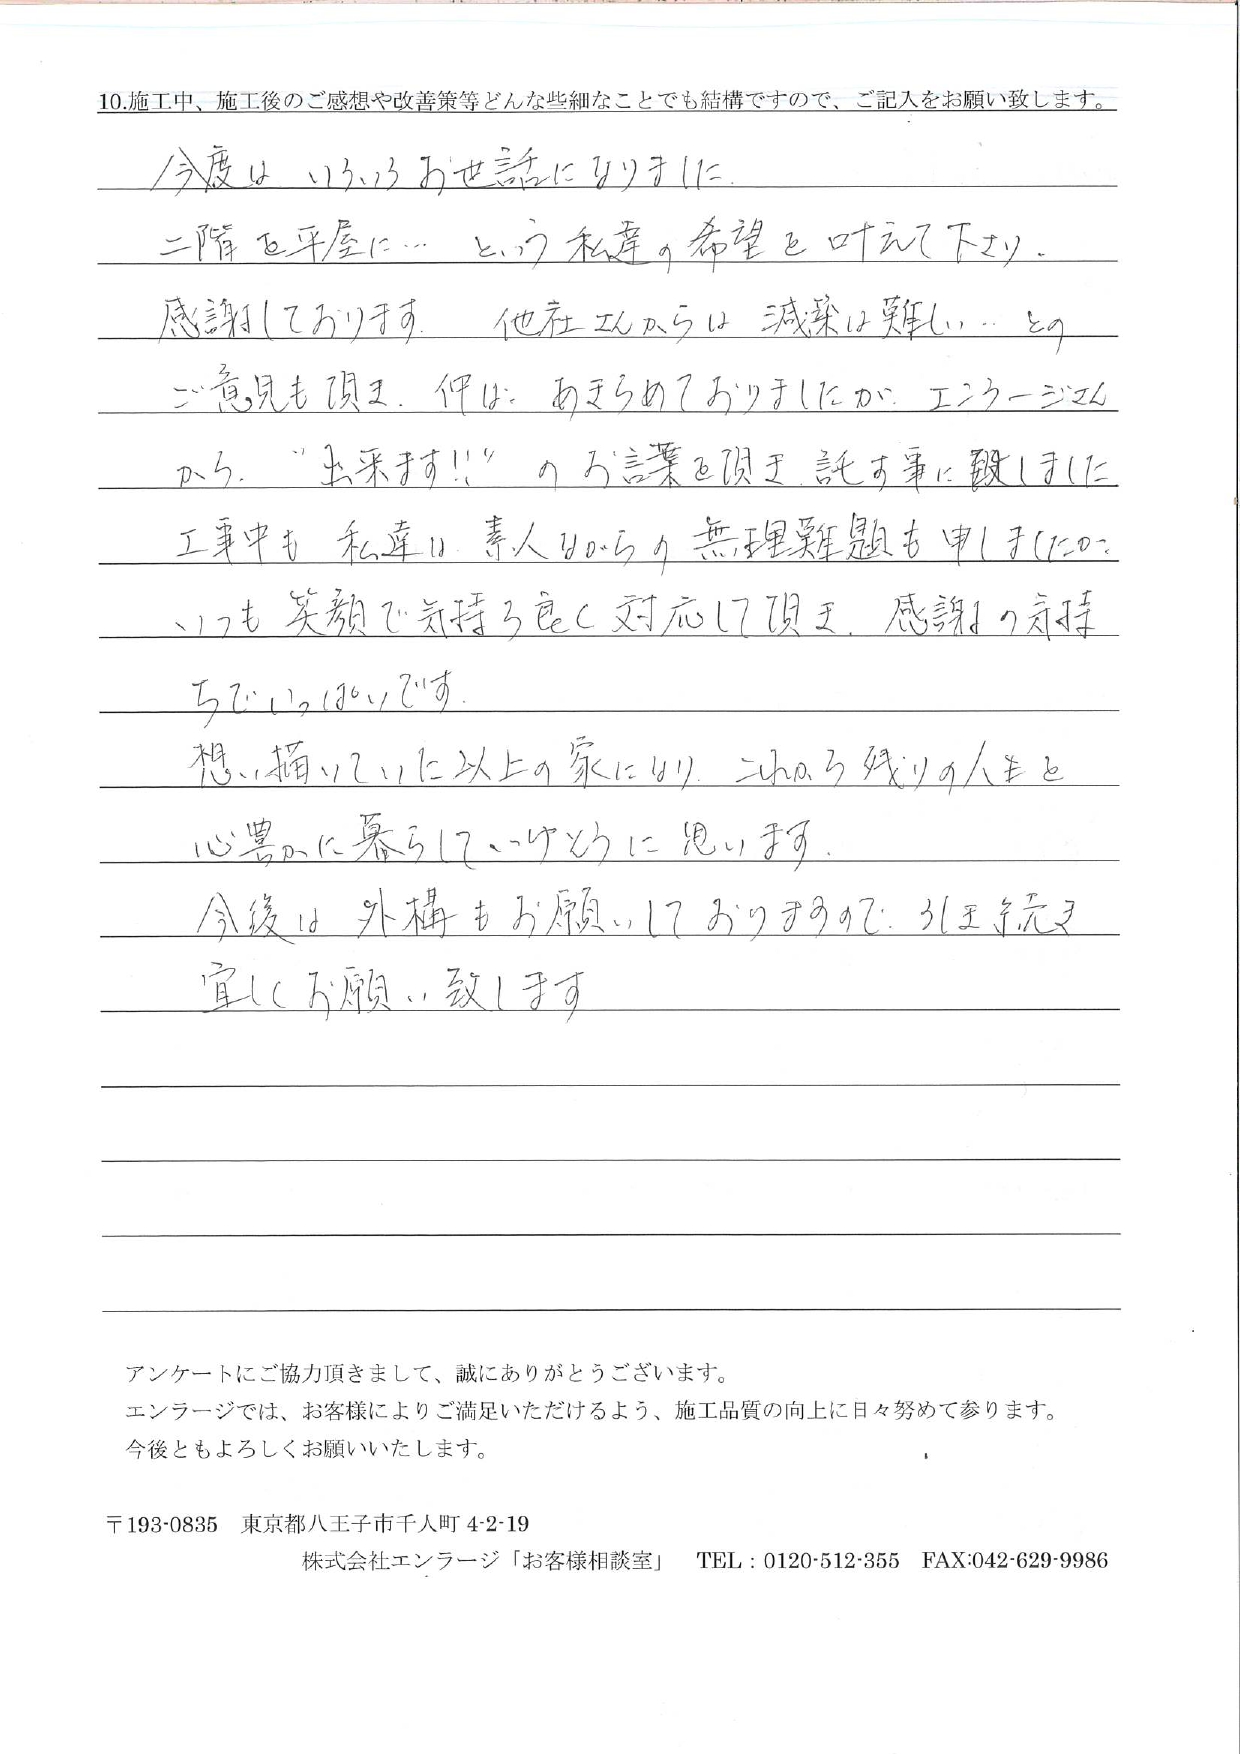 10.施工中、施工後のご感想や改善策等どんな些細なことでも結構ですので、ご記入をお願い致します。
今度は いろいろお世話になりました.
二階を平屋に… という私達の希望を叶えて下さり.
感謝しております. 他社さんからは 減築は難しい… との
ご意見も頂き. 半ば. あきらめておりましたが. エンラージさん
から. "出来ます!!" のお言葉を頂き. 託す事に致しました
工事中も 私達は 素人ながらの 無理難題も申しましたが.
いつも 笑顔で気持ち良く対応して頂き. 感謝の気持
ちでいっぱいです.
想い描いていた以上の家になり. これから残りの人生を
心豊かに暮らしていけそうに思います.
今後は 外構もお願いしておりますので. 引き続き
宜しくお願い致します
アンケートにご協力頂きまして、誠にありがとうございます。
エンラージでは、お客様によりご満足いただけるよう、施工品質の向上に日々努めて参ります。
今後ともよろしくお願いいたします。
〒193-0835 東京都八王子市千人町 4-2-19
株式会社エンラージ「お客様相談室」 TEL : 0120-512-355 FAX:042-629-9986